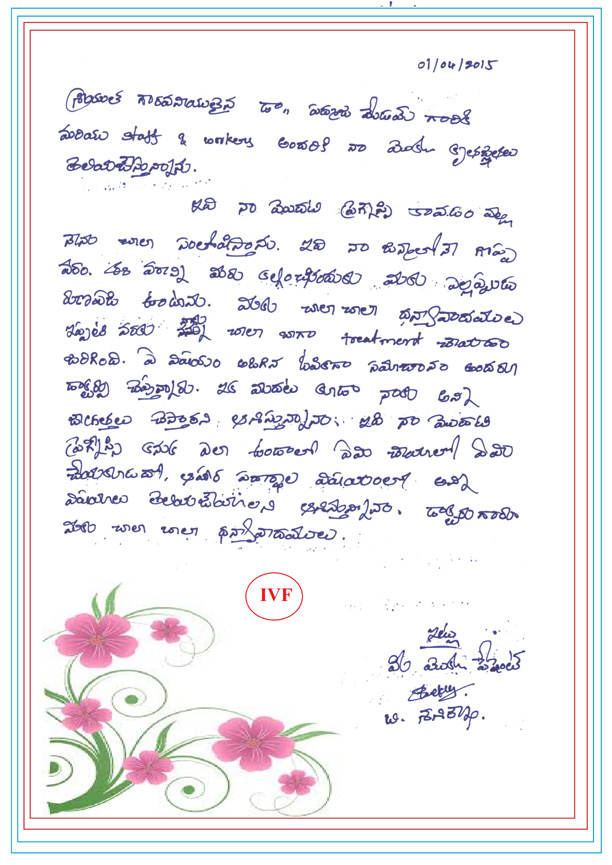 01/04/2015
శ్రీయుత గౌరవనీయులైన డా,, మేడమ్ గారికి
మరియు staff & workers అందరికి నా మొక్క కృతజ్ఞతలు
తెలియచేస్తున్నాను.
ఇది నా మొదటి ప్రెగ్నెన్సి కావడం వల్ల
నేను చాలా సంతోషిస్తాను. ఇది నా జన్మలోనే గొప్ప
వరం. ఈ వరాన్ని మీరు కల్పించినందుకు మీకు ఎల్లప్పుడు
రుణపడి ఉంటాను. మీకు చాలా చాలా ధన్యావాదములు
ఇప్పటి వరకు నాకు చాలా బాగా treatment చేయడం
జరిగింది. ఏ విషయం అడిగిన ఓపికగా సమాధానం అందరూ
డాక్టర్స్ చెప్తున్నారు. ఇక మీదట కూడా నాకు అన్ని
జాగ్రత్తలు చెప్తారని ఆశిస్తున్నాను. ఇది నా మొదటి
ప్రెగ్నెన్సి కనుక ఎలా ఉండాలో ఏమి చేయాలో ఏమి
చేయకూడదో, ఆహార పదార్థాల విషయంలో అన్ని
విషయాలు తెలియచేయాలని ఆశిస్తున్నాను. డాక్టరుగారూ
మీకు చాలా చాలా ధన్యావాదములు.
IVF
ఇట్లు
మీ మొక్క పేషెంట్
బి.